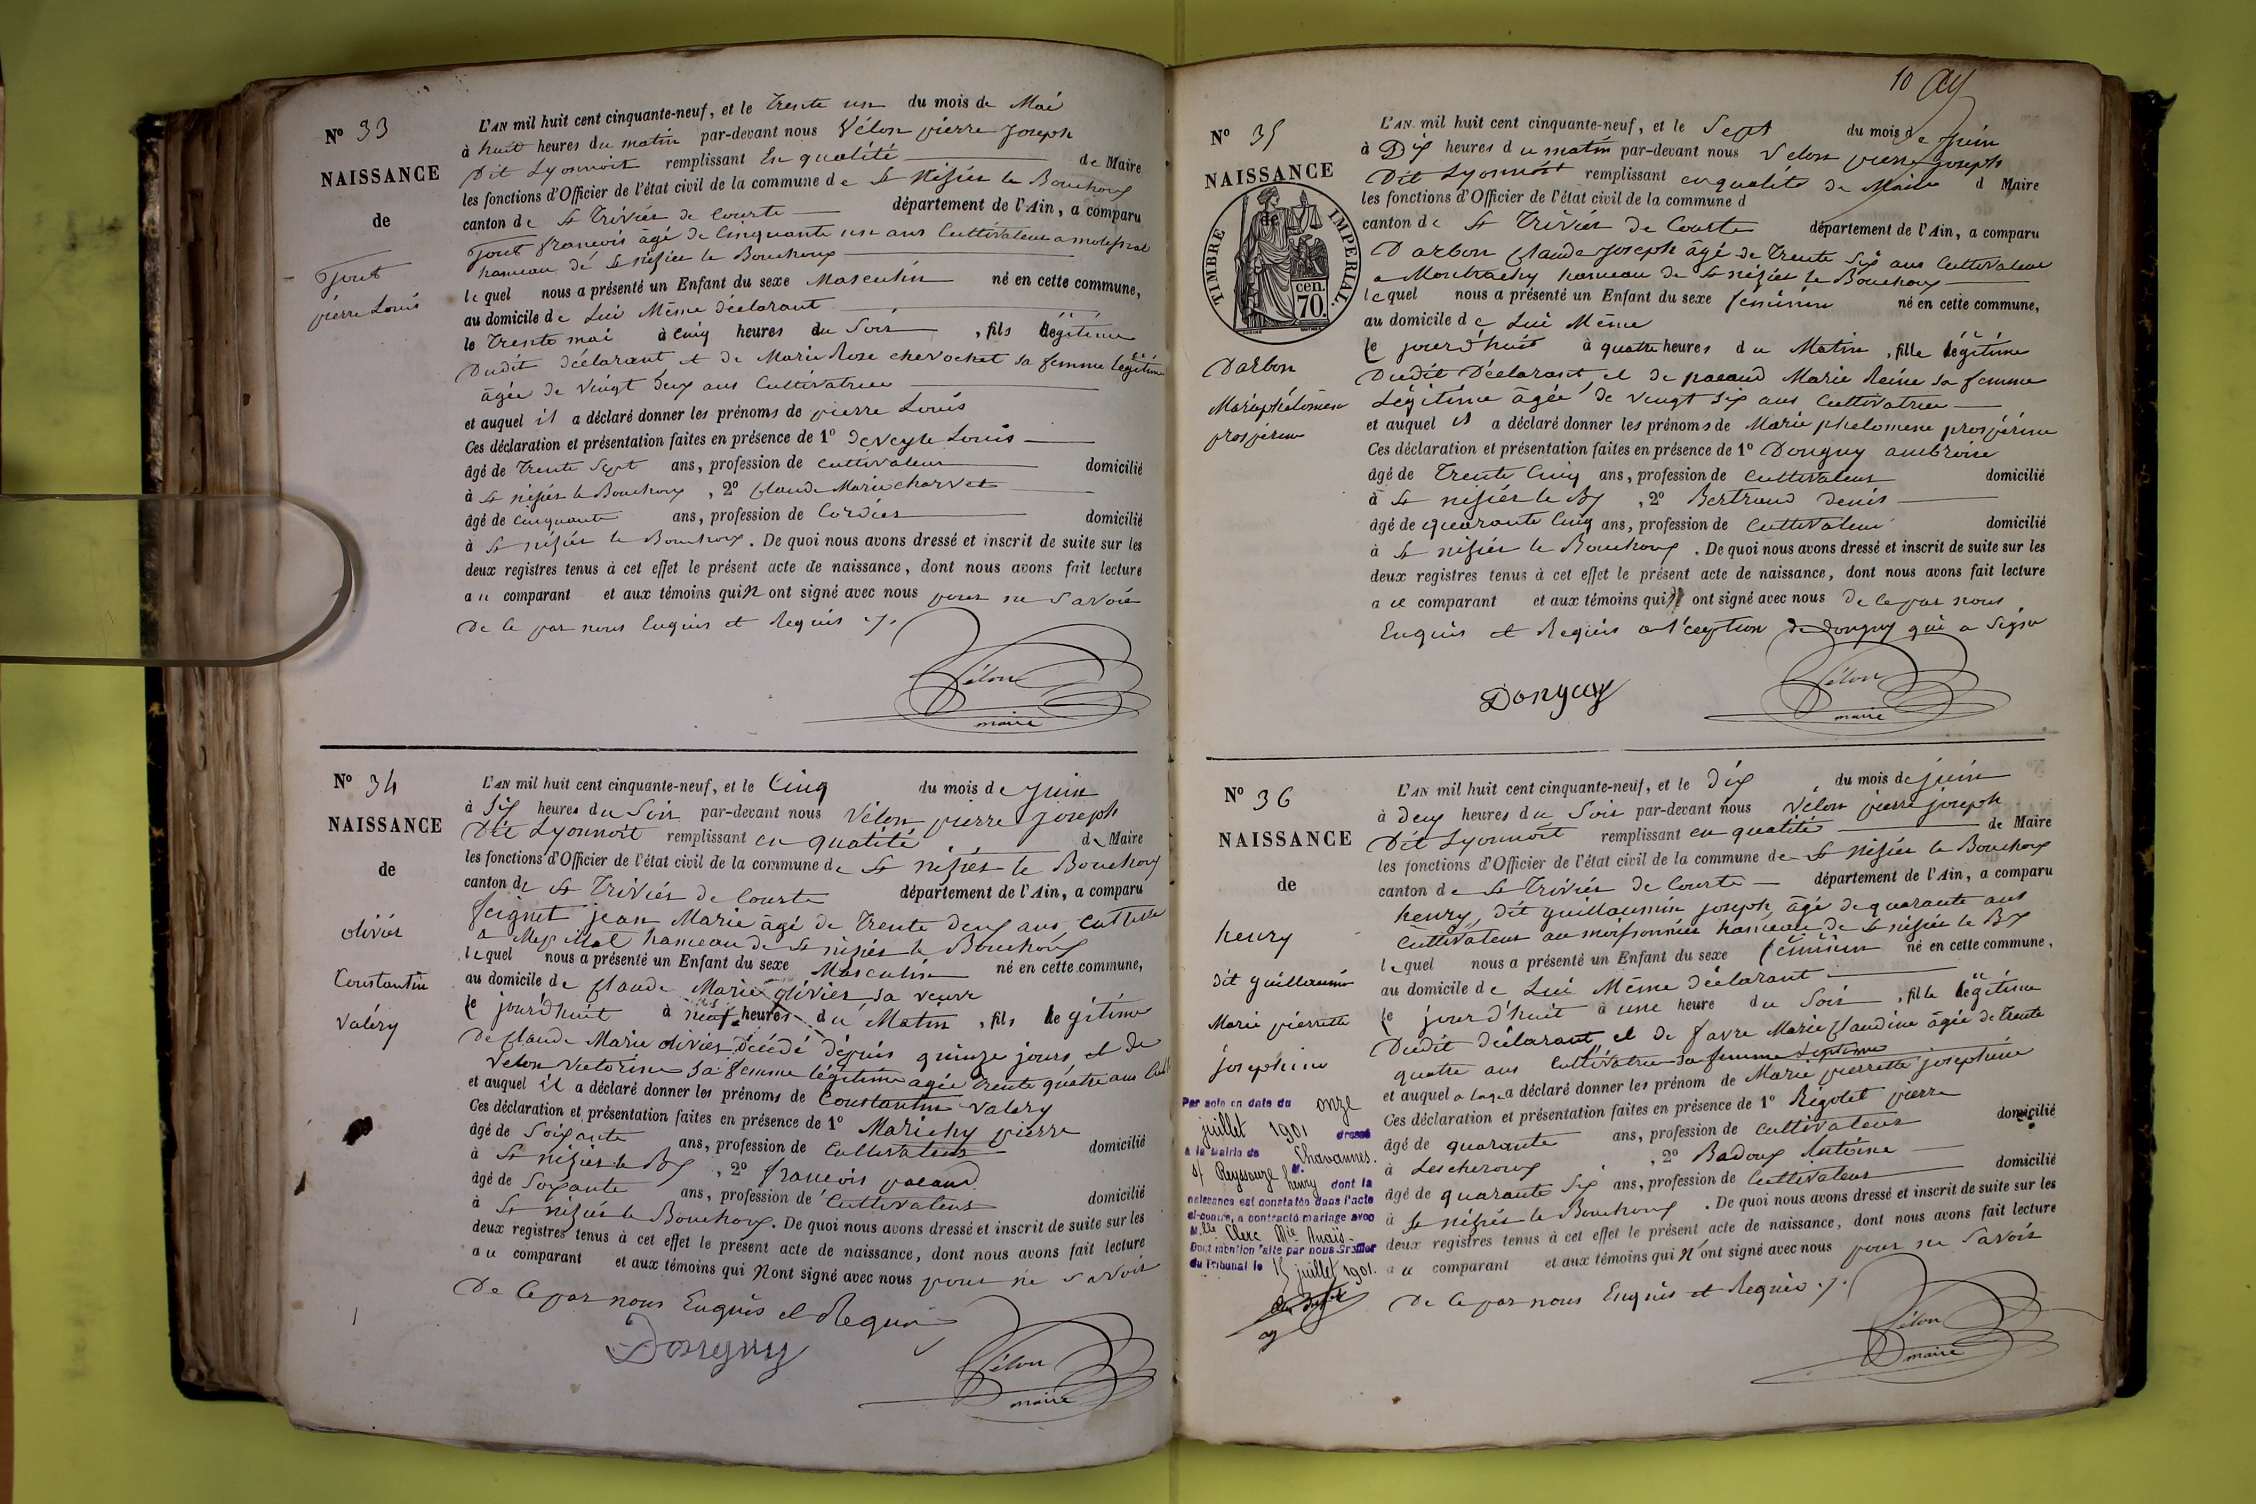 N° 33
NAISSANCE
de
Jout
pierre Louis
L'AN mil huit cent cinquante-neuf, et le Trente un du mois de Mai
à huit heures du matin par-devant nous Vélon pierre Joseph
Dit Lyonnoit remplissant En qualité de Maire
les fonctions d'Officier de l'état civil de la commune de St Nisiér le Bouchoux
canton de St Triviér de Courte département de l'Ain, a comparu
Jout francois âgé de Cinquante un ans Cultivateur a
hameau dé St nisier le Bouchoux
lequel nous a présenté un Enfant du sexe Masculin né en cette commune,
au domicile de Lui Même déclarant
le Trente mai à Cinq heures du Soir, fils légitime
Dudit déclarant et de Marie Rose chevochet sa femme légitime
âgée de vingt deux ans Cultivatrice
et auquel il a déclaré donner les prénoms de pierre Louis
Ces déclaration et présentation faites en présence de 1° deveyle Louis
âgé de Trente Sept ans, profession de cultivateur domicilié
à St nisier le Bouchoux, 2° Claude Marie charvet
âgé de Cinquante ans, profession de Cordier domicilié
à St nisiér le Bouchoux. De quoi nous avons dressé et inscrit de suite sur les
deux registres tenus à cet effet le présent acte de naissance, dont nous avons fait lecture
au comparant et aux témoins qui n ont signé avec nous pour ne Savoir
De Ce par nous Enquis et Requis
Vélon
maire
N° 34
NAISSANCE
de
olivier
Constantin
Valéry
L'AN mil huit cent cinquante-neuf, et le Cinq du mois de juin
à Six heures du Soir par-devant nous Vélon pierre joseph
Dit Lyonnoit remplissant en qualité de Maire
les fonctions d'Officier de l'état civil de la commune de St nisiér le Bouchoux
canton de St Triviér de Courte département de l'Ain, a comparu
feignet jean Marie âgé de Trente deux ans,
a hameau de St nisier le Bouchoux
lequel nous a présenté un Enfant du sexe Masculin né en cette commune,
au domicile de Claude Marie olivier sa veuve
le jourdhuit à neuf heures du Matin, fils légitime
De Claude Marie olivier, décédé dépuis quinze jours et de
Velon Victorine sa femme légitime agée Trente quatre ans
et auquel il a déclaré donner les prénoms de Constantin Valéry
Ces déclaration et présentation faites en présence de 1° Marichy pierre
âgé de Soixante ans, profession de Cultivateur domicilié
à St nisier le Bx, 2° francois pacaud
âgé de Soixante ans, profession de Cultivateur domicilié
à St nisiér le Bouchoux. De quoi nous avons dressé et inscrit de suite sur les
deux registres tenus à cet effet le présent acte de naissance, dont nous avons fait lecture
au comparant et aux témoins qui n ont signé avec nous pour ne Savoir
De Ce par nous Enquis et Requis
Donguy
Vélon
maire
10
N° 35
NAISSANCE
de
TIMBRE IMPERIAL.
70 cen.
Darbon
Marie phélomene
prospérine
L'AN mil huit cent cinquante-neuf, et le Sept du mois de Juin
à Dix heures du matin par-devant nous Velon pierre joseph
Dit Lyonnoit remplissant en qualité de Maire d Maire
les fonctions d'Officier de l'état civil de la commune d
canton de St Triviér de Courte département de l'Ain, a comparu
Darbon Claude Joseph âgé de Trente Six ans Cultivateur
a Montrachy hameau de St nisiér le Bouchoux
lequel nous a présenté un Enfant du sexe féminin né en cette commune,
au domicile de Lui Même
le jourd'huit à quatre heures du Matin, fille légitime
Dudit Déclarant, et de pacaud Marie Reine sa femme
Légitime âgée de vingt Six ans Cultivatrice
et auquel il a déclaré donner les prénoms de Marie phelomene prospérine
Ces déclaration et présentation faites en présence de 1° Donguy ambroise
âgé de Trente Cinq ans, profession de Cultivateur domicilié
à St nisiér le Bx, 2° Bertrand Denis
âgé de quarante Cinq ans, profession de Cultivateur domicilié
à St nisiér le Bouchoux. De quoi nous avons dressé et inscrit de suite sur les
deux registres tenus à cet effet le présent acte de naissance, dont nous avons fait lecture
au comparant et aux témoins qui ont signé avec nous de Ce par nous
Enquis et Requis a l'ception de Donguy qui a Signé
Donguy
Vélon
maire
N° 36
NAISSANCE
de
henry
dit guillaumin
Marie pierrette
joséphine
Par acte en date du onze
juillet 1901 dressé
à la Mairie de Chavannes
s/ Reyssouze M. henry dont la
naissance est constatée dans l'acte
ci-contre, a contracté mariage avec
Mlle Clerc Mie Anaïs
Dont mention faite par nous Greffier
du Tribunal le 15 juillet 1901.
L'AN mil huit cent cinquante-neuf, et le Dix du mois de juin
à deux heures du Soir par-devant nous Vélon pierre joseph
Dit Lyonnoit remplissant en qualité de Maire
les fonctions d'Officier de l'état civil de la commune de St Nisier le Bouchoux
canton de St Triviér de Courte département de l'Ain, a comparu
henry, dit guillaumin joseph, âgé de quarante ans
Cultivateur au moissonnier hameau de St nisiér le Bx
lequel nous a présenté un Enfant du sexe féminin né en cette commune,
au domicile de Lui Même déclarant
le jourd'huit à une heure du Soir, fille légitime
Dudit déclarant et de favre Marie Claudine âgée de Trente
quatre ans Cultivatrice sa femme légitime
et auquel a déclaré donner les prénom de Marie pierrette joséphine
Ces déclaration et présentation faites en présence de 1° Rigolet pierre
âgé de quarante ans, profession de Cultivateur domicilié
à Lescheroux, 2° Badoux Antoine
âgé de quarante Six ans, profession de Cultivateur domicilié
à St nisiér le Bouchoux. De quoi nous avons dressé et inscrit de suite sur les
deux registres tenus à cet effet le présent acte de naissance, dont nous avons fait lecture
au comparant et aux témoins qui n'ont signé avec nous pour ne Savoir
De Ce par nous Enquis et Requis
Vélon
maire